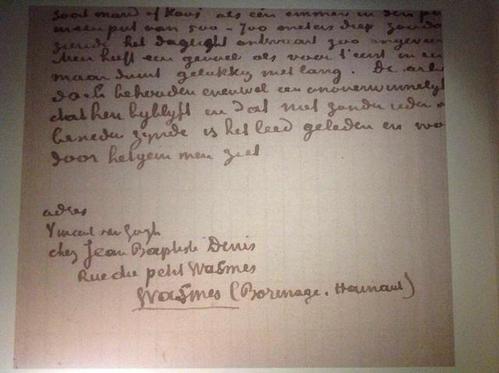 Soort mand of kooi als een emmer in den pu
meenput van 500 - 700 meters diep zooda
ziende het daglight ontwaart zoo ongeveer
Men heeft een gevoel als voor 't eerst in ee
maar duurt gelukkig niet lang. De arbe
doch behouden evenwel een onoverwinnelijk
dat hen byblyft en dat niet zonder reden o
beneden zynde is het leed geleden en wo
door hetgeen men ziet
adres
Vincent van Gogh
chez Jean Baptiste Denis
Rue du petit Wasmes
Wasmes (Borinage. Hainaut)